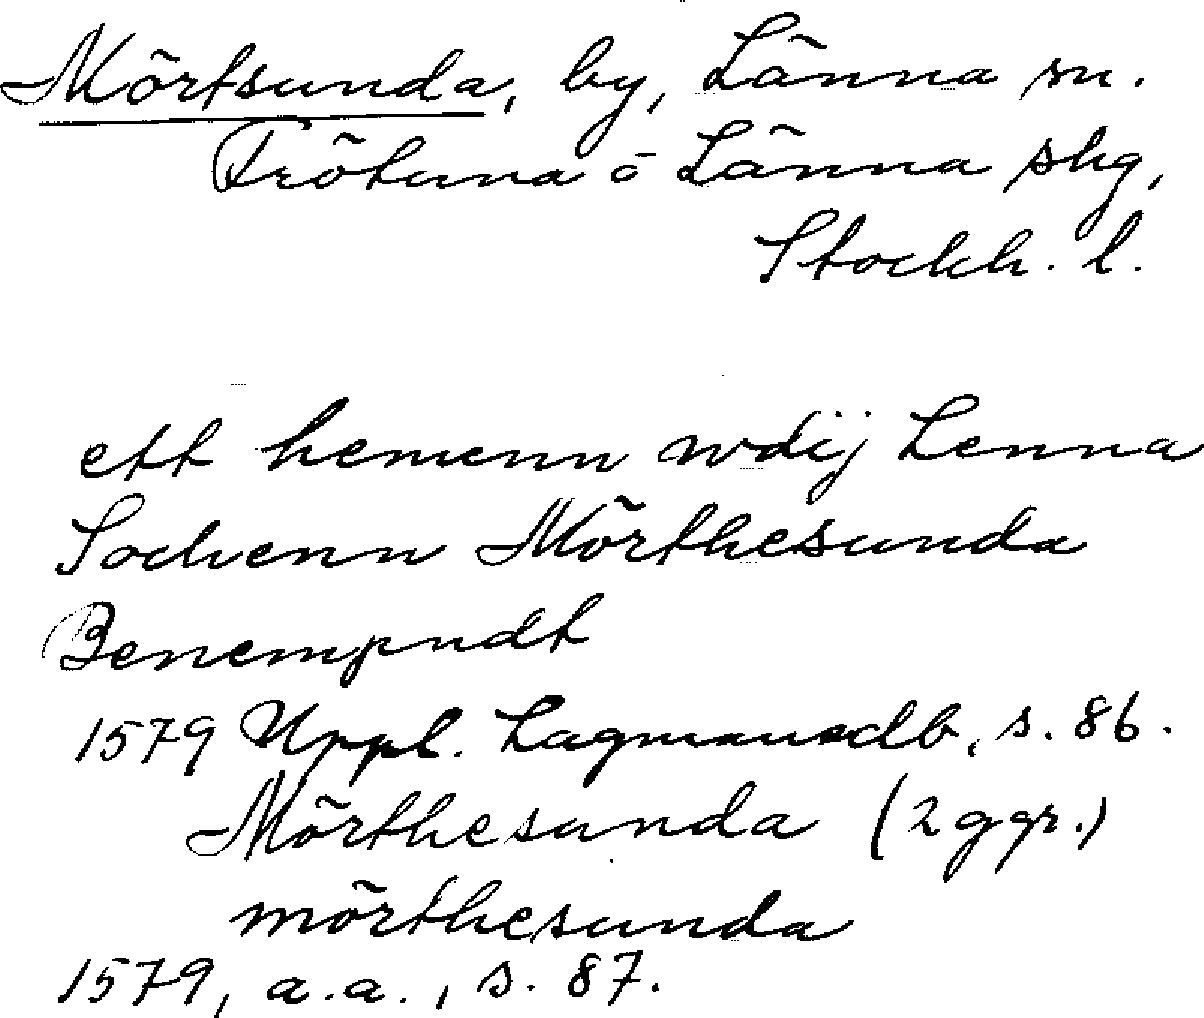 Mörtsunda, by, Länna sn.
Frötuna ō Länna skg,
Stockh. l.
ett hemenn wdij Lenna
Sochenn Mörthesunda
Benempndt
1579 Uppl. Lagmansdb, s. 86.
Mörthesunda (2 ggr.)
mörthesunda
1579, a.a., s. 87.